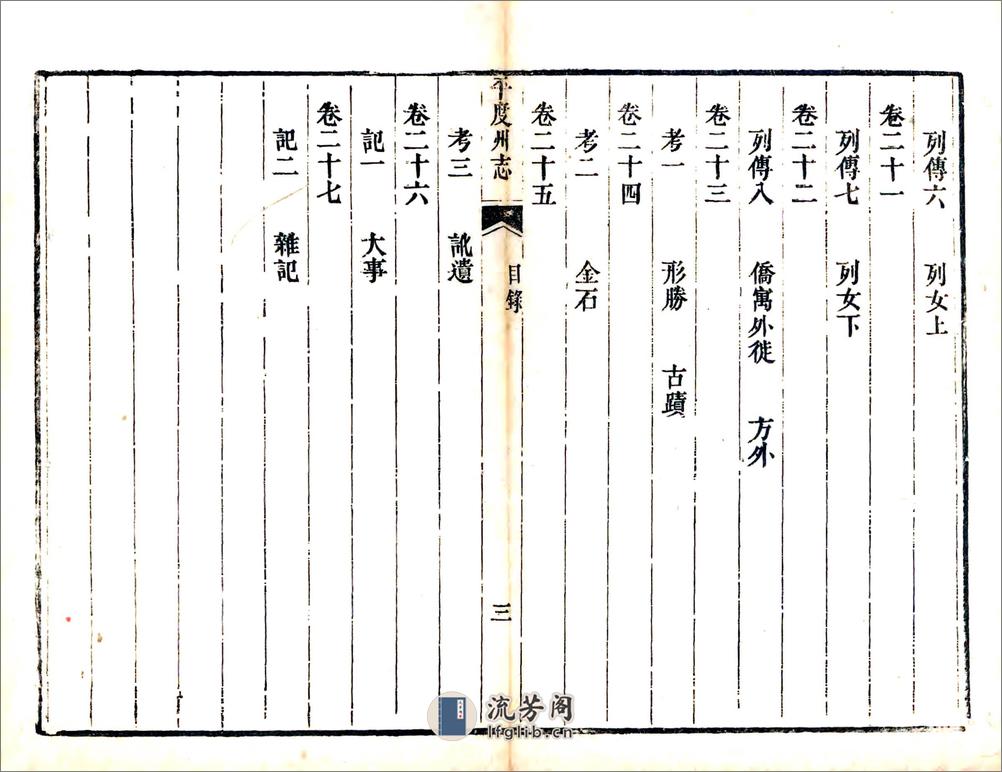 列傳六　列女上
卷二十一
列傳七　列女下
卷二十二
列傳八　僑寓外徙　方外
卷二十三
考一　形勝　古蹟
卷二十四
考二　金石
卷二十五
平度州志　目錄　三
考三　訛遺
卷二十六
記一　大事
卷二十七
記二　雜記
流芳阁
lfglib.cn